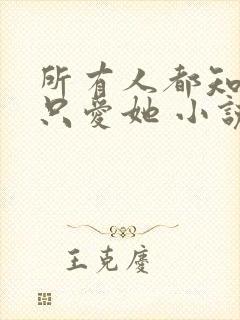 所有人都知
只爱她 小说
王克庆